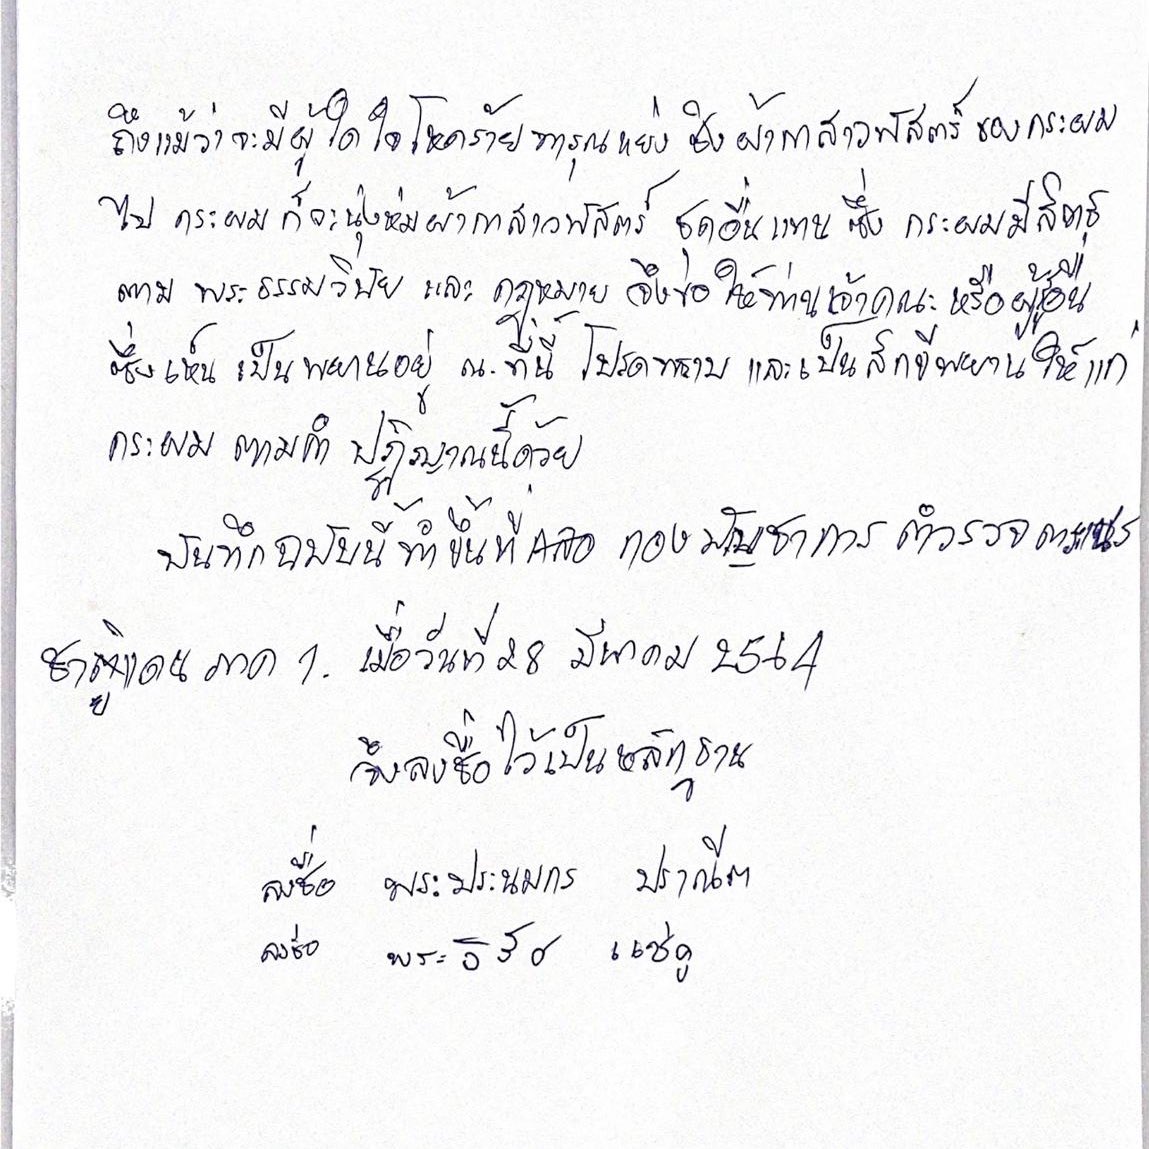 ถึงแม้ว่าจะมีผู้ใดใจโหดร้ายทารุณแย่งชิงผ้ากาสาวพัสตร์ของกระผม
ไป กระผมก็จะนุ่งห่มผ้ากาสาวพัสตร์ ชุดอื่นแทน ซึ่งกระผมมีสิทธิ
ตามพระธรรมวินัย และ กฎหมาย จึงขอให้ท่านเจ้าคณะ หรือผู้อื่น
ซึ่งเห็นเป็นพยานอยู่ ณ.ที่นี้ โปรดทราบ และเป็นสักขีพยานให้แก่
กระผม ตามคำปฏิญาณนี้ด้วย
บันทึกฉบับนี้ทำขึ้นที่ กองบัญชาการ ตำรวจตระเวน
ชายแดน ภาค 1. เมื่อวันที่ 28 มีนาคม 2564
จึงลงชื่อไว้เป็นหลักฐาน
ลงชื่อ พระประนมกร ปราณีต
ลงชื่อ พระ